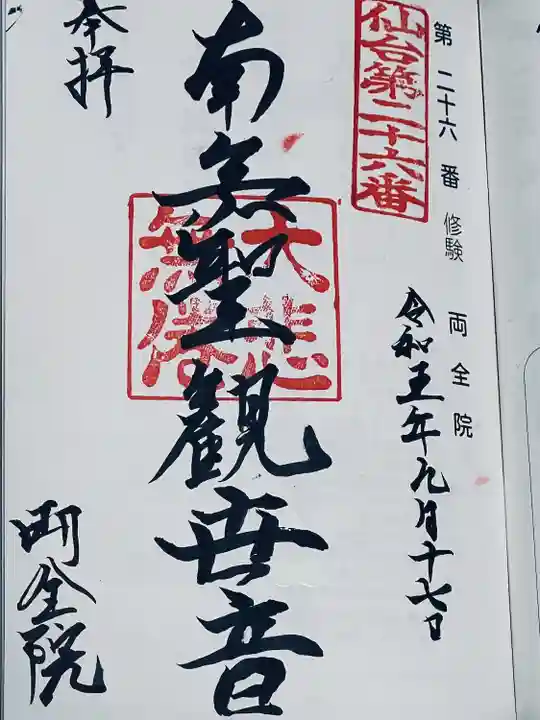 第二十六番 修験 両全院
仙台第二十六番
令和五年九月十七日
南無聖観世音
大悲
無偏
奉拝
両全院